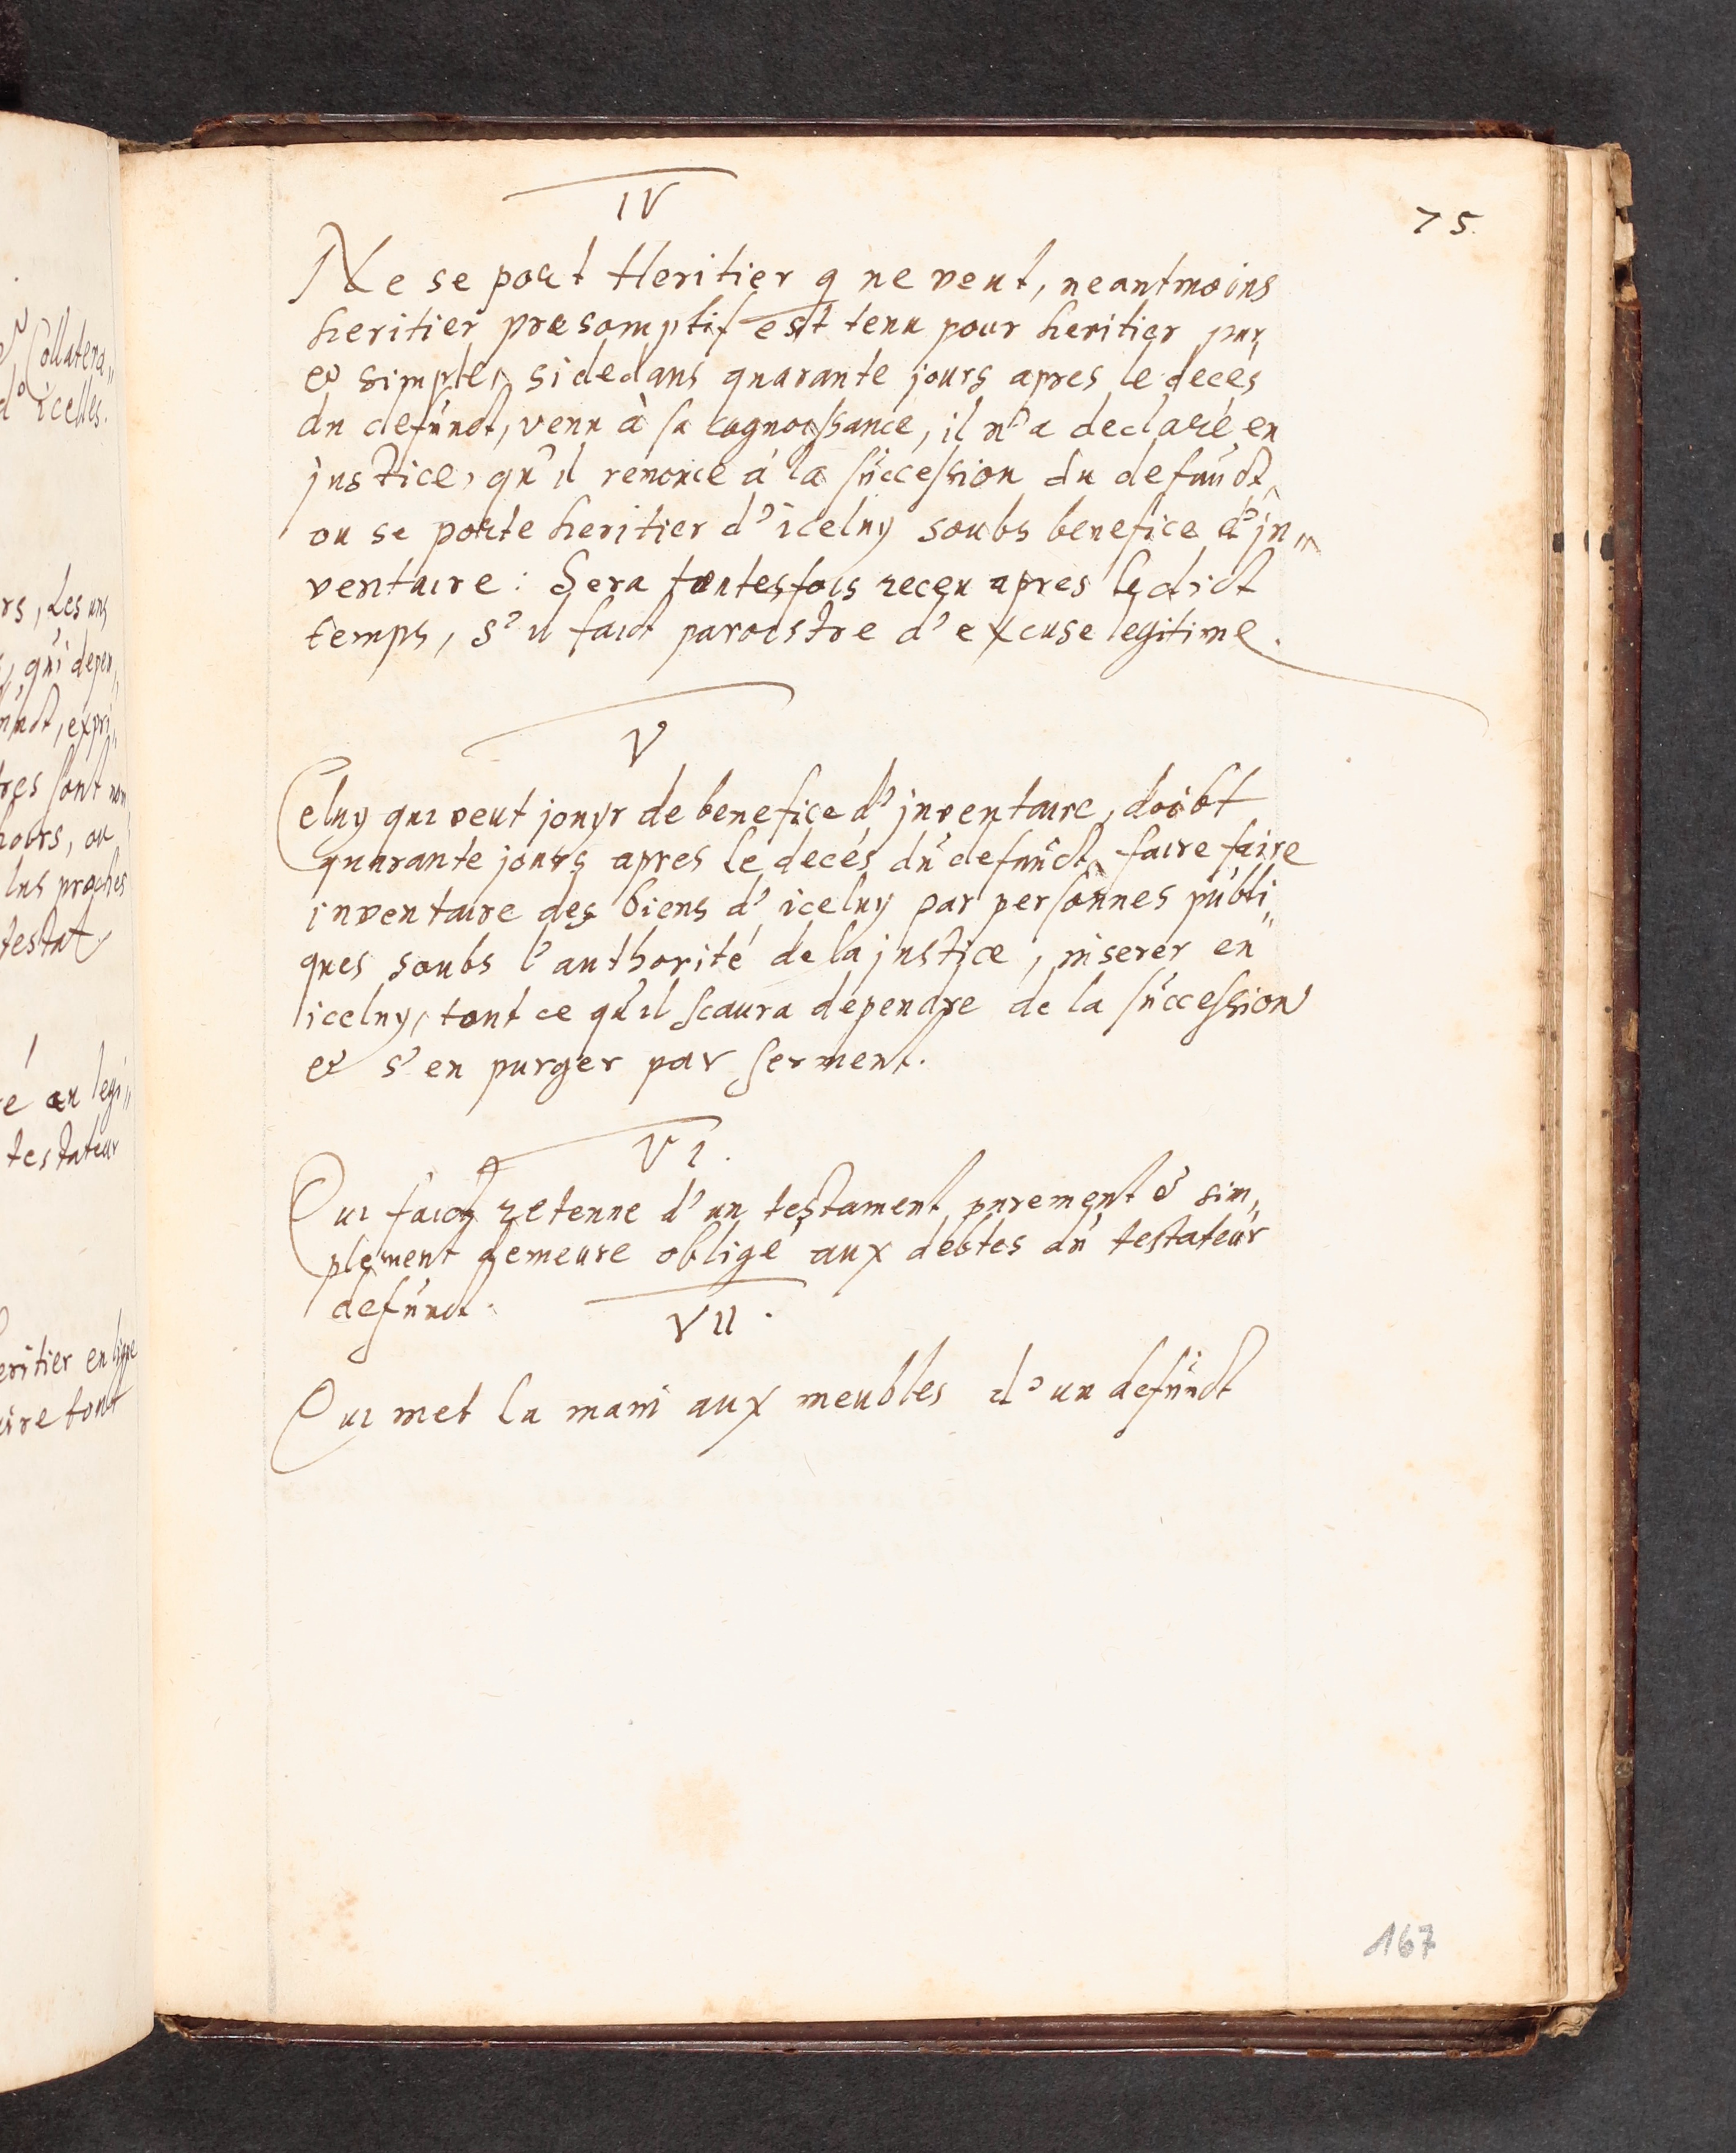 IV
75.
Ne se port Heritier q ne veut, neantmoins
heritier presomptif est tenu pour heritier pur
et simple, si dedans quarante jours apres le deces
du defunct, venu à sa cognoissance, il n'a declaré en
justice, qu'il renonce à la succession du defunct,
ou se porte heritier d'iceluy soubs benefice d'jn„
ventaire: Sera toutesfois receu apres le dict
temps, s'il faict paroistre d'excuse legitime.
V
Celuy qui veut jouyr de benefice d'jnventaire, doibt
quarante jours apres le decés du defunct, faire faire
inventaire des biens d'iceluy par personnes publi„
ques soubs l'authorité de la justice, inserer en
iceluy, tout ce qu'il scaura dependre de la succession
et s'en purger par serment.
VI.
Qui faict retenue d'un testament purement & sim„
plement demeure obligé aux debtes du testateur
defunct.
VII.
Qui met la main aux meubles d'un defunct
167
Collatera„
d'icelles.
rs, Les uns
, qui depen„
expri„
tres sont non
hoirs, ou
lus proches
testat
é au legi„
testateur
eritier en ligne
ire tout